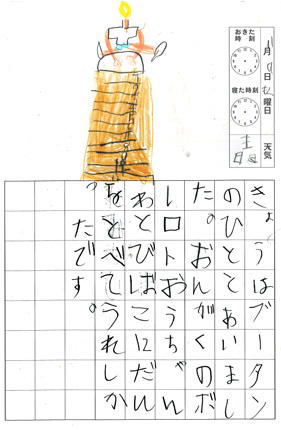 おきた時刻
月日曜日
寝た時刻
天気
きょうはブータン
のひととあいまし
た。おんがくのボ
レロトおうちゃん
わとびばこにだん
をとべてうれしか
ったです。